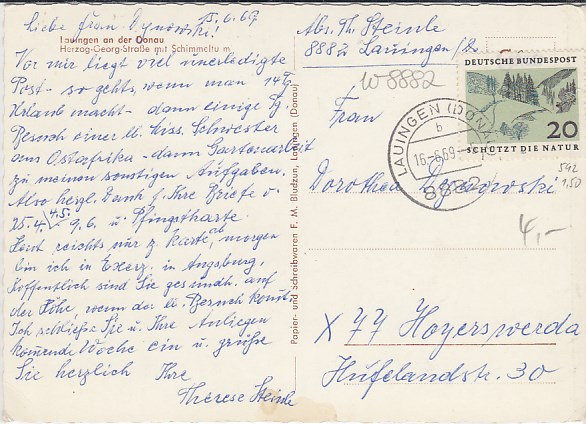 15.6.69
Liebe Frau
Lauingen an der Donau
Herzog-Georg-Straße mit Schimmeltu m
Vor mir liegt viel unerledigte
Post - so gehts, wenn man 14 Tg.
Urlaub macht - dann einige Tg.
Besuch einer lb. Miss. Schwester
aus Ostafrika - dann Gartenarbeit
zu meinen sonstigen Aufgaben.
Also hergl. Dank f. Ihre Briefe v.
25.4. 4.5. 9.6. u. Pfingstkarte.
Heut reichts nur z. Karte, ab morgen
bin ich in Exerz. in Augsburg.
Hoffentlich sind Sie gesundh. auf
der Höhe, wenn der lb. Besuch kommt.
Ich schließe Sie u. Ihre Anliegen
kommende Woche ein u. grüße
Sie herzlich Ihre
Therese Steinle
Papier- und Schreibwaren F. M. Bludzun, Lauingen (Donau)
Abs. Th. Steinle
8882 Lauingen/D.
W 8882
DEUTSCHE BUNDESPOST
20
SCHÜTZT DIE NATUR
LAUINGEN (DONAU)
b
16.-6.69
8882
Frau
Dorothea
542
1,50
4,-
X 77 Hoyerswerda
Hufelandstr. 30